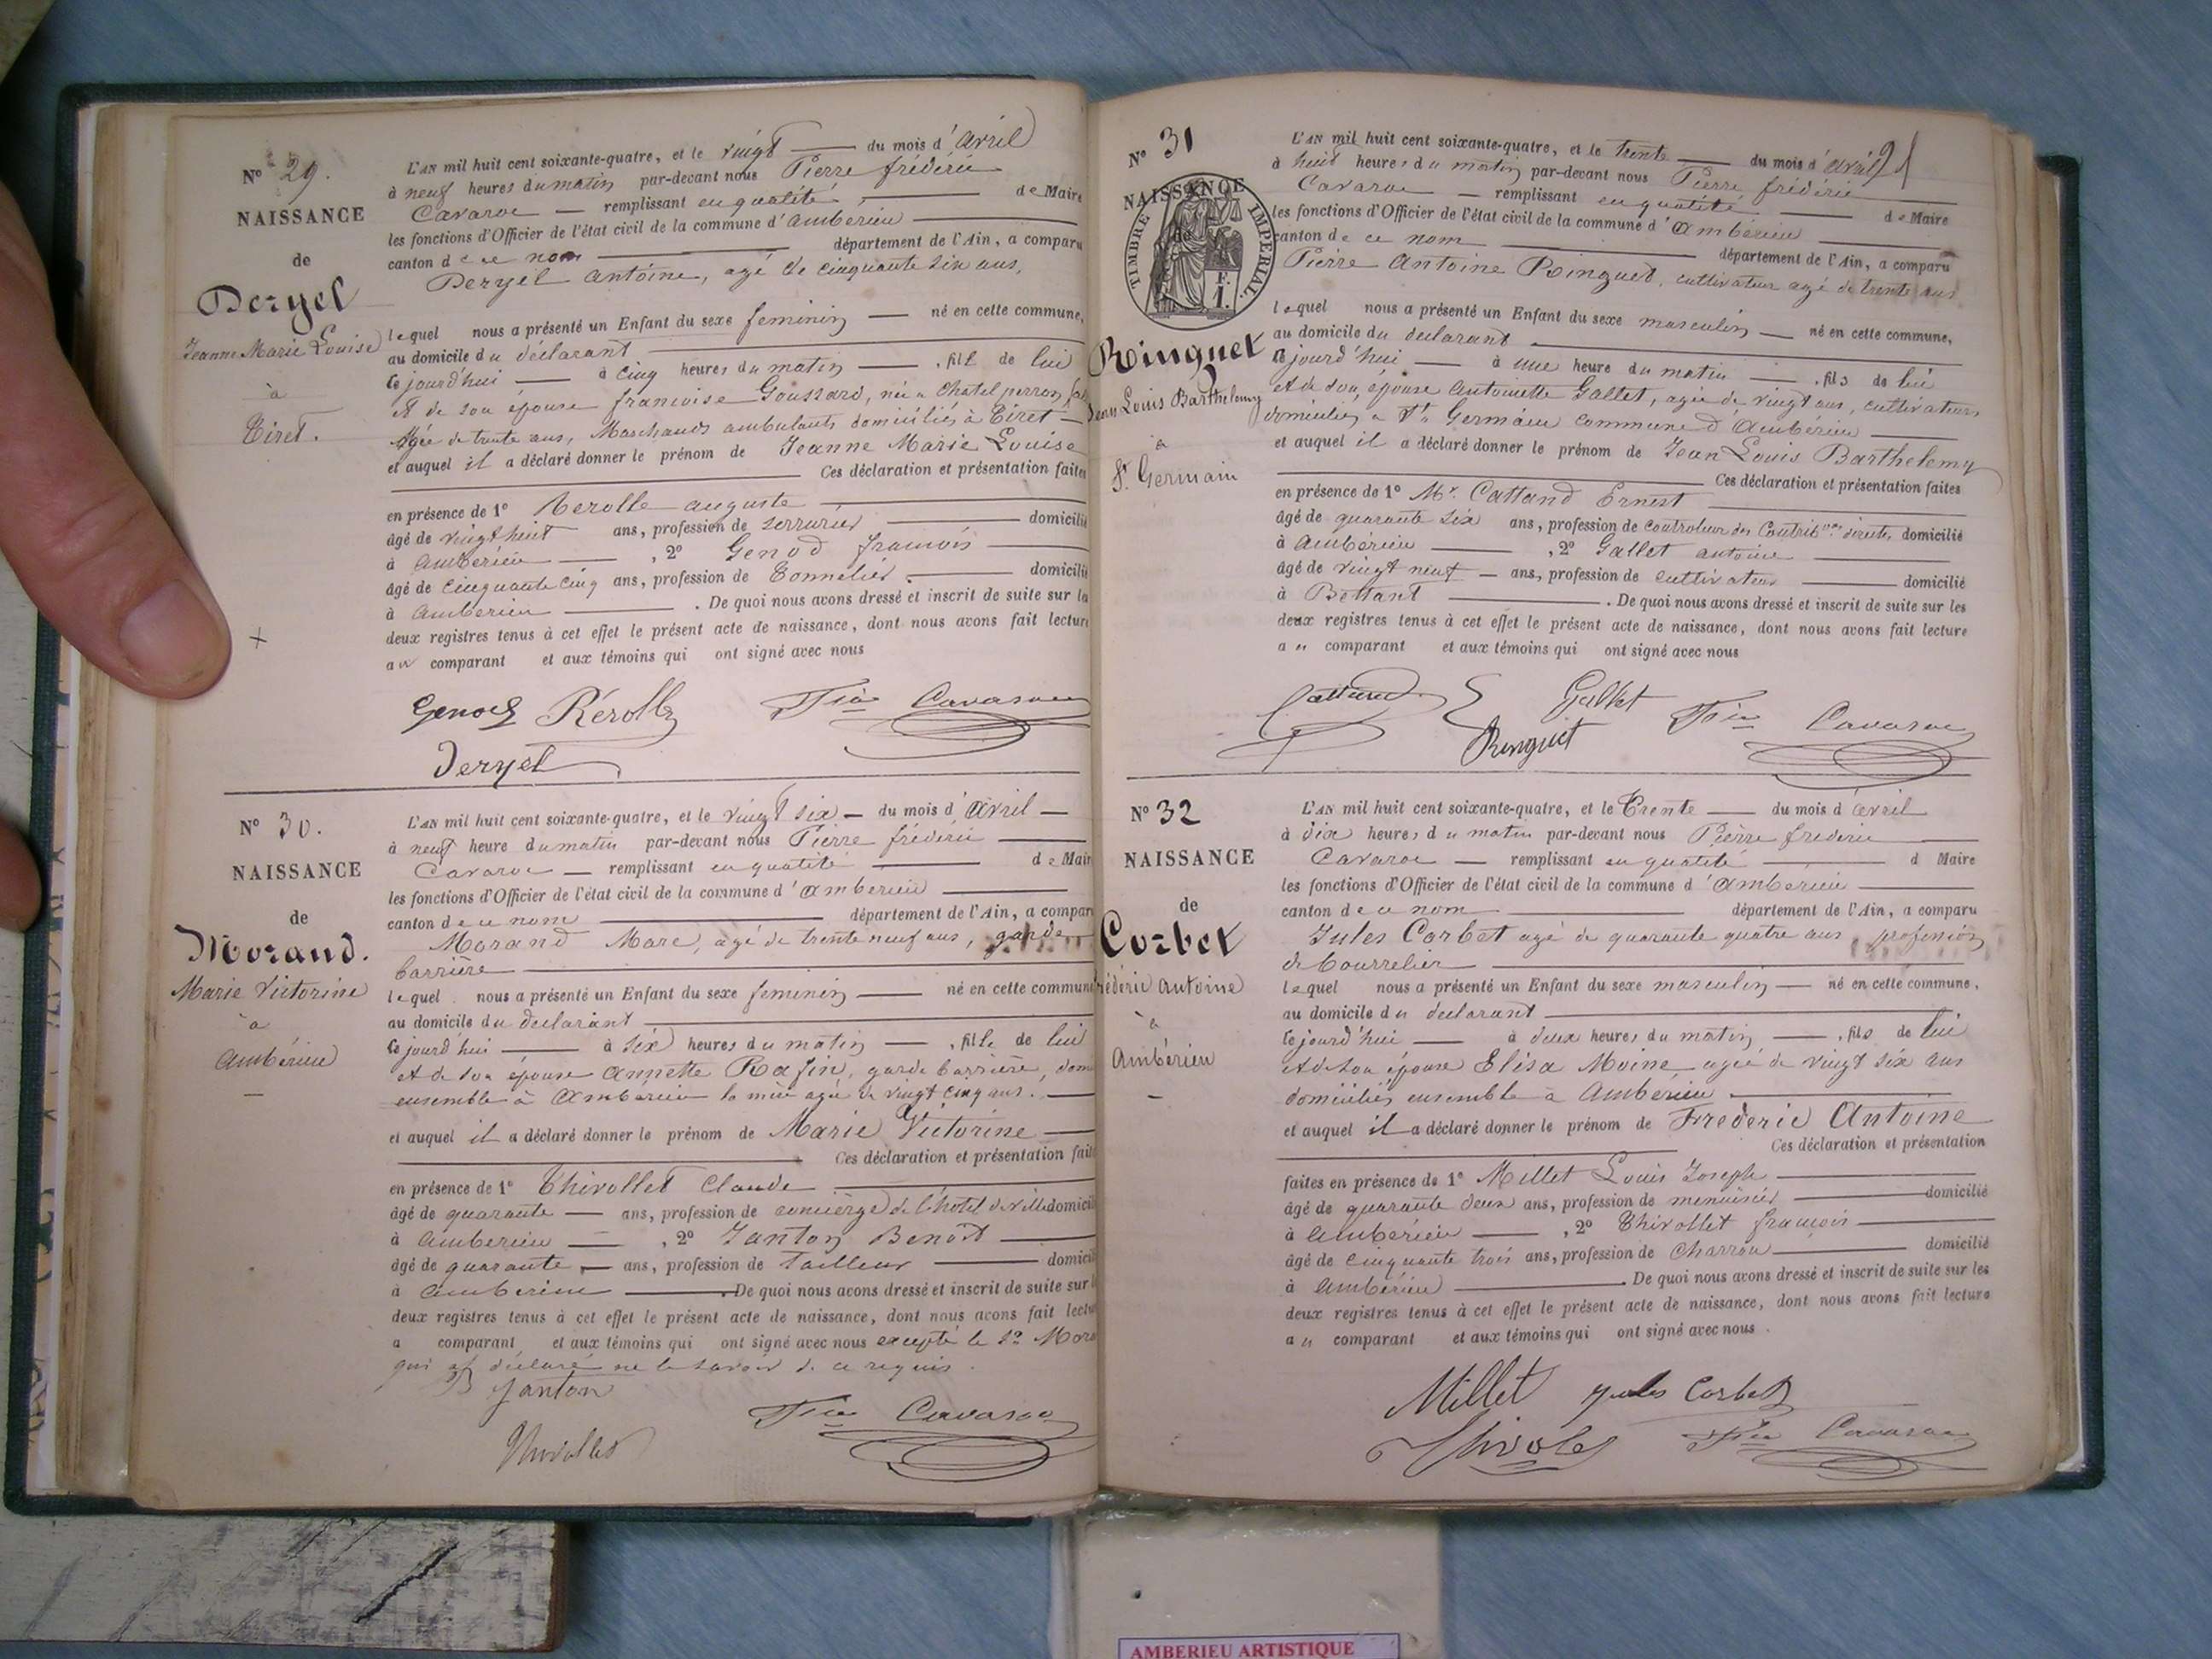 N° 29.
NAISSANCE
de
Deryel
Jeanne Marie Louise
à
Tiret.
L'AN mil huit cent soixante-quatre, et le vingt du mois d'avril
à neuf heures du matin par-devant nous Pierre frédéric
Cavaroc remplissant en qualité de Maire
les fonctions d'Officier de l'état civil de la commune d'ambérieu
canton de ce nom département de l'Ain, a comparu
Deryel antoine, agé de cinquante six ans,
lequel nous a présenté un Enfant du sexe feminin né en cette commune,
au domicile du déclarant
cejourd'hui à cinq heures du matin , fille de lui
et de son épouse francoise Goussard, née a Chatel perron
agée de trente ans, Marchands ambulants domiciliés à Tiret
et auquel il a déclaré donner le prénom de Jeanne Marie Louise
Ces déclaration et présentation faites
en présence de 1° Rerolle auguste
âgé de vingt huit ans, profession de serrurier domicilié
à ambérieu , 2° Genod francois
âgé de cinquante cinq ans, profession de Tonnelier domicilié
à amberieu . De quoi nous avons dressé et inscrit de suite sur la
deux registres tenus à cet effet le présent acte de naissance, dont nous avons fait lecture
au comparant et aux témoins qui ont signé avec nous
Genod Rérolle Fric Cavaroc
Deryel
N° 30.
NAISSANCE
de
Morand.
Marie Victorine
à
Ambérieu
L'AN mil huit cent soixante-quatre, et le vingt six du mois d'avril
à neuf heure du matin par-devant nous Pierre fréderic
Cavaroc remplissant en qualité de Maire
les fonctions d'Officier de l'état civil de la commune d'amberieu
canton de ce nom département de l'Ain, a comparu
Morand Marc, agé de trente neuf ans, garde
barrière
lequel nous a présenté un Enfant du sexe feminin né en cette commune
au domicile du declarant
cejourd'hui à six heures du matin , fille de lui
et de son épouse annette Rafin, garde barrière, dom
ensemble à Amberieu la mère agée de vingt cinq ans.
et auquel il a déclaré donner le prénom de Marie Victorine
Ces déclaration et présentation faite
en présence de 1° Thivollet Claude
âgé de quarante ans, profession de concièrge de l'hotel de ville domicil
à amberieu , 2° Janton Benoît
âgé de quarante ans, profession de Tailleur domicil
à amberieu . De quoi nous avons dressé et inscrit de suite sur l
deux registres tenus à cet effet le présent acte de naissance, dont nous avons fait lectu
a comparant et aux témoins qui ont signé avec nous excepté le Sr Mora
qui a déclaré ne le savoir de ce requis.
B Janton
Fric Cavaroc
Thivollet
N° 31
NAISSANCE
de
TIMBRE IMPERIAL.
F.
1.
Ringuet
Jean Louis Barthelemy
à
St Germain
L'AN mil huit cent soixante-quatre, et le trente du mois d'avril
à huit heures du matin par-devant nous Pierre fréderic
Cavaroc remplissant en qualité de Maire
les fonctions d'Officier de l'état civil de la commune d'ambérieu
canton de ce nom département de l'Ain, a comparu
Pierre Antoine Ringuet, cultivateur agé de trente ans
lequel nous a présenté un Enfant du sexe masculin né en cette commune,
au domicile du declarant
cejourd'hui à une heure du matin , fils de lui
et de son épouse antoinette Gallet, agée de vingt ans, cultivateurs
domiciliés a St Germain commune d'Ambérieu
et auquel il a déclaré donner le prénom de Jean Louis Barthelemy
Ces déclaration et présentation faites
en présence de 1° Mr. Cattand Ernest
âgé de quarante six ans, profession de controleur des Contribons directes domicilié
à ambérieu , 2° Gallet antoine
âgé de vingt neuf ans, profession de cultivateur domicilié
à Bettant . De quoi nous avons dressé et inscrit de suite sur les
deux registres tenus à cet effet le présent acte de naissance, dont nous avons fait lecture
au comparant et aux témoins qui ont signé avec nous
Cattand Gallet Fric Cavaroc
Ringuet
N° 32
NAISSANCE
de
Corbet
frédéric antoine
à
Ambérieu
L'AN mil huit cent soixante-quatre, et le Trente du mois d'avril
à dix heures du matin par-devant nous Pierre frederic
Cavaroc remplissant en qualité d Maire
les fonctions d'Officier de l'état civil de la commune d'ambérieu
canton de ce nom département de l'Ain, a comparu
Jules Corbet agé de quarante quatre ans profession
de bourrelier
lequel nous a présenté un Enfant du sexe masculin né en cette commune,
au domicile du declarant
cejourd'hui à deux heures du matin , fils de lui
et de son épouse Elisa Moine agée de vingt six ans
domiciliés ensemble à Ambérieu
et auquel il a déclaré donner le prénom de Frederic Antoine
Ces déclaration et présentation
faites en présence de 1° Millet Louis Joseph
âgé de quarante deux ans, profession de menuisier domicilié
à Ambérieu , 2° Thivollet françois
âgé de cinquante trois ans, profession de Charron domicilié
à Ambérieu . De quoi nous avons dressé et inscrit de suite sur les
deux registres tenus à cet effet le présent acte de naissance, dont nous avons fait lecture
au comparant et aux témoins qui ont signé avec nous.
Millet Jules Corbet
Thivolet Fric Cavaroc
AMBERIEU ARTISTIQUE